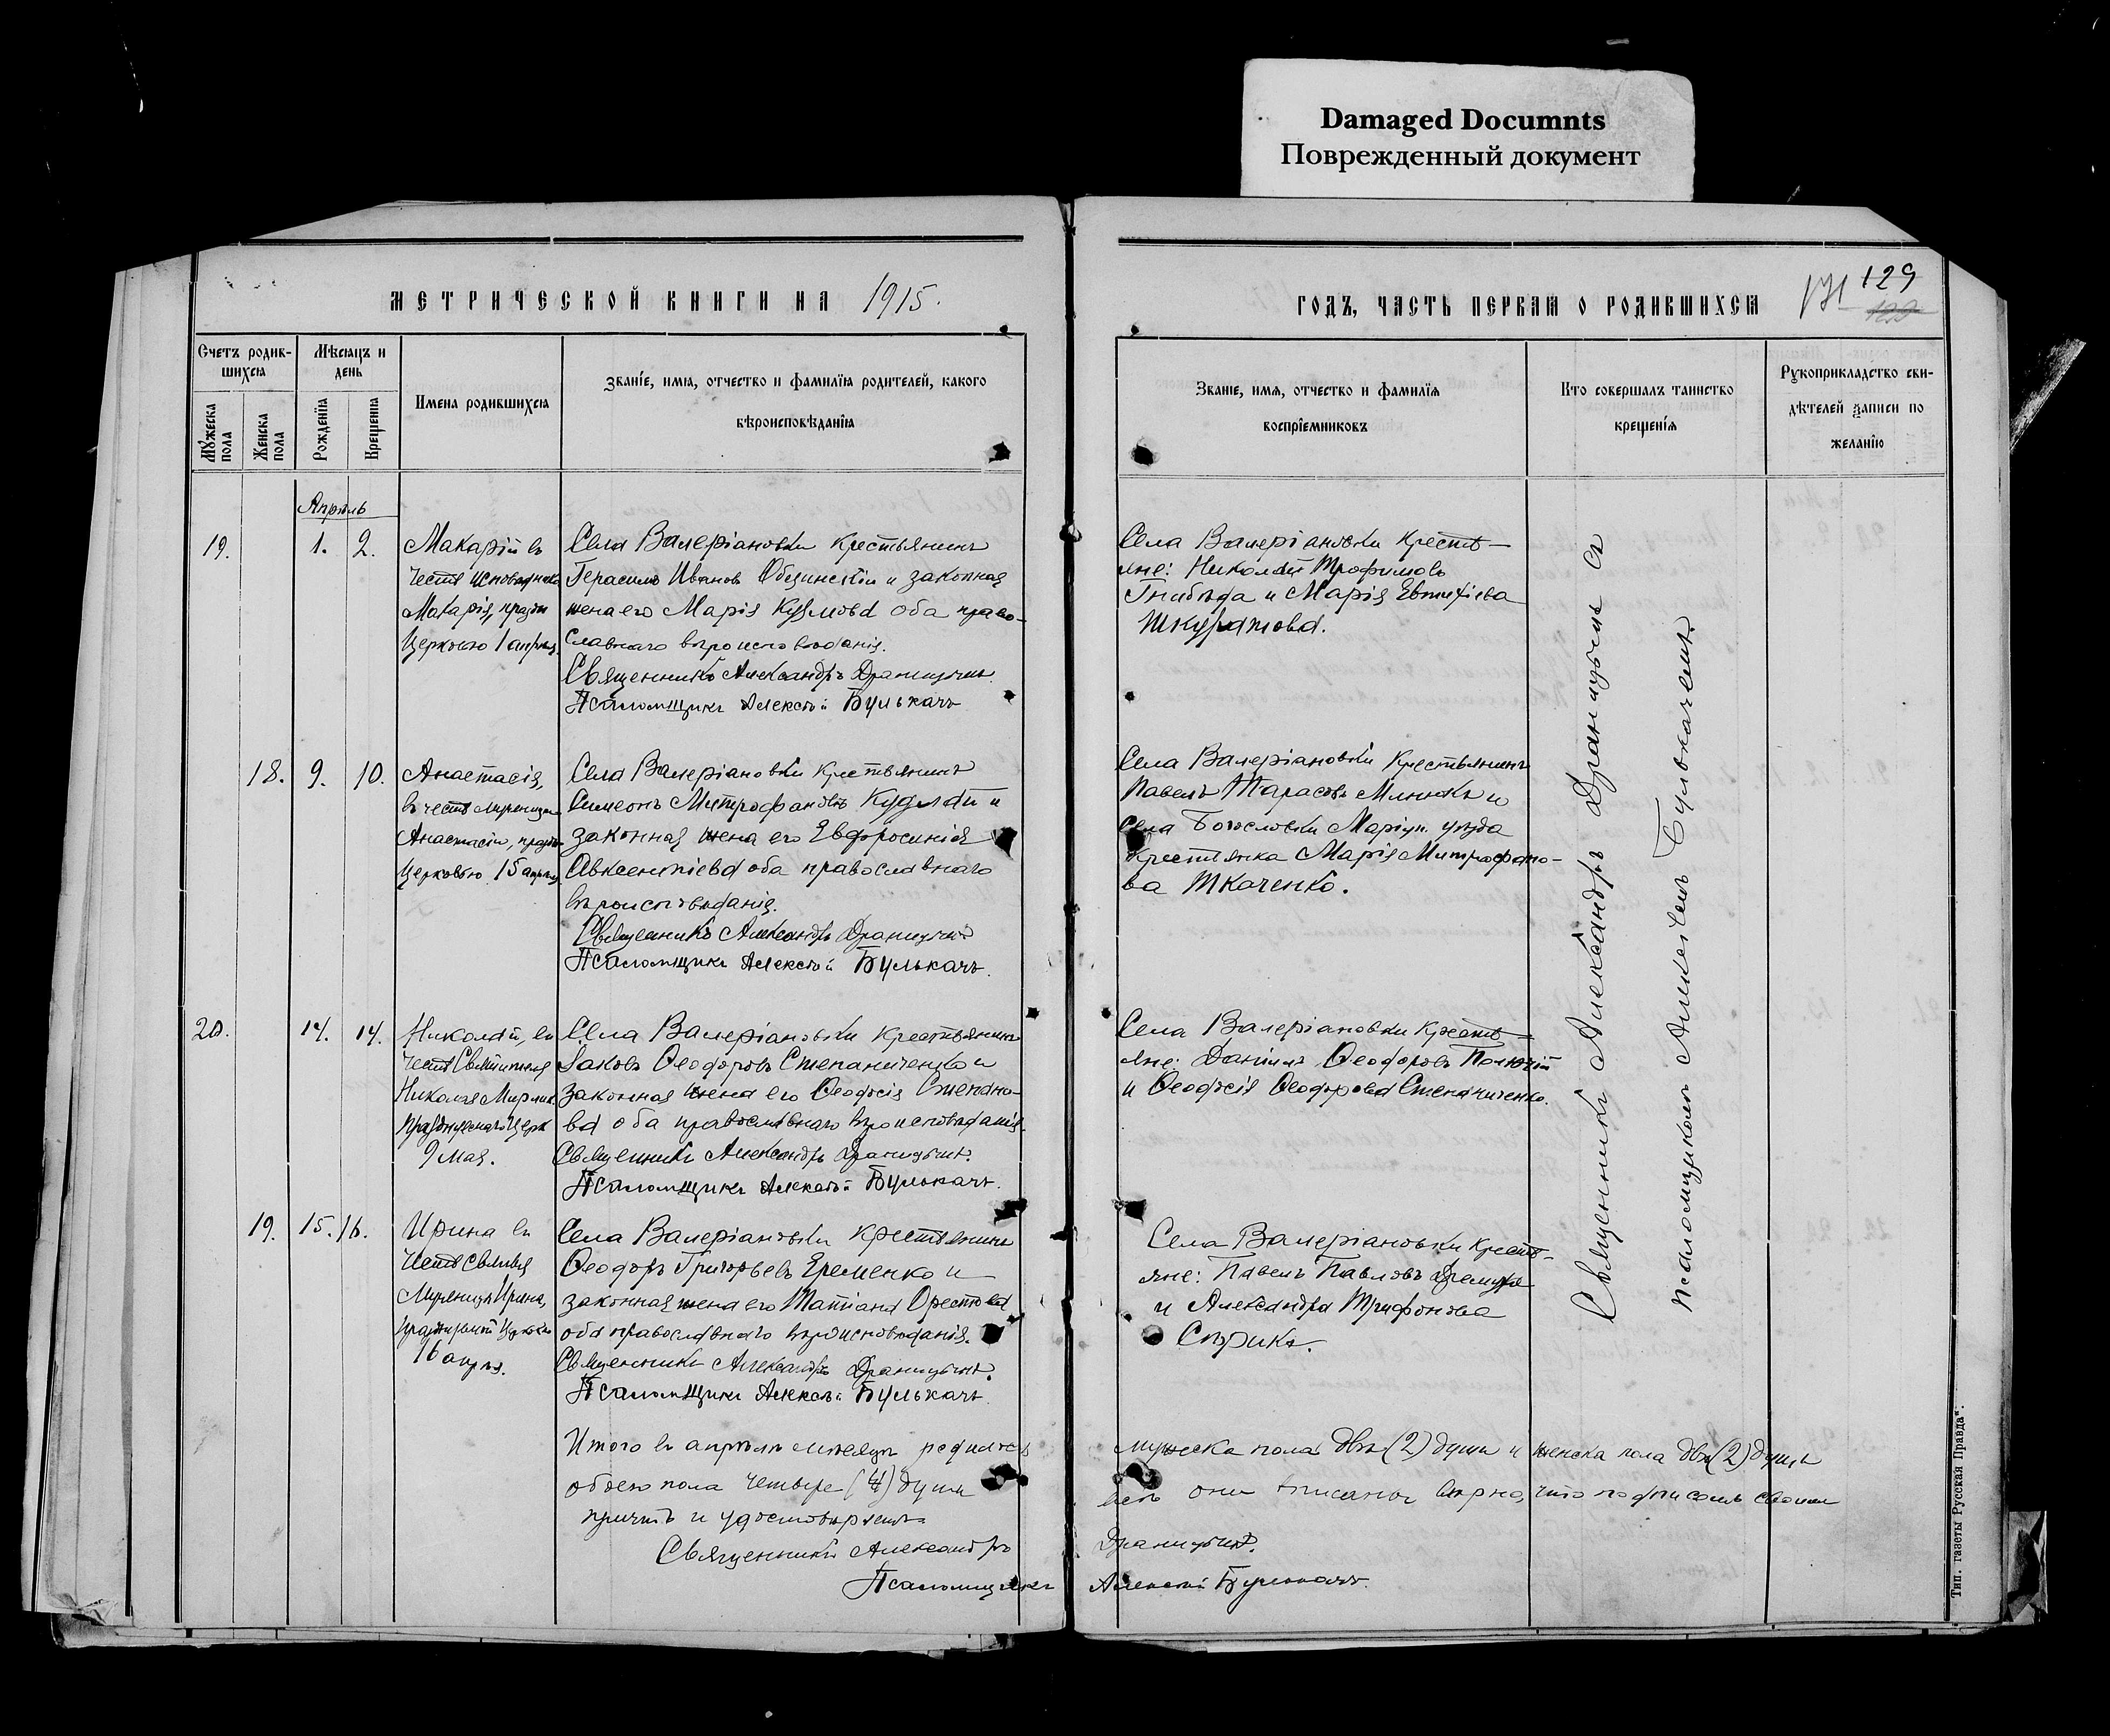 Damaged Documnts
Поврежденный документ
МЕТРИЧЕСКОЙ КНИГИ НА 1915.
Счетъ родив-
шихся
Мѣсяцъ и
день
Мужеска
пола
Женска
пола
Рожденія
Крещенія
Имена родившихся
Званіе, имя, отчество и фамилія родителей, какого
вѣроисповѣданія
Апрѣль
19.
1.
2.
Макарій въ
честь исповѣдника
Макарія, празд.
Церковью 1 апрѣля.
Села Валеріановки крестьянинъ
Герасимъ Ивановъ Общинскій и законная
жена его Марія Кузмова оба право-
славнаго вѣроисповѣданія.
Священникъ Александръ Драницынъ.
Псаломщикъ Алексѣй Булькачъ
18.
9.
10.
Анастасія,
въ честь мученицы
Анастасіи, празд.
церковью 15 апрѣля
Села Валеріановки крестьянинъ
Симеонъ Митрофановъ Кудлай и
законная жена его Евфросинія
Авксентіева оба православнаго
вѣроисповѣданія.
Священникъ Александръ Драницынъ
Псаломщикъ Алексѣй Булькачъ.
20.
14.
14.
Николай, въ
честь Святителя
Николая Мирлик.
празднуемаго Церк
9 мая.
Села Валеріановки крестьянинъ
Іаковъ Ѳеодоровъ Степаниченко и
законная жена его Ѳеодосія Степано-
ва оба православнаго вѣроисповѣданія.
Священникъ Александръ Драницынъ.
Псаломщикъ Алексѣй Булькачъ.
19.
15.
16.
Ирина въ
честь святыя
Мученицы Ирины,
празднуемой Церковью
16 апрѣля.
Села Валеріановки крестьянинъ
Ѳеодоръ Григорьевъ Еременко и
законная жена его Татіана Орестова
оба православнаго вѣроисповѣданія.
Священникъ Александръ Драницынъ.
Псаломщикъ Алексѣй Булькачъ.
Итого въ апрѣлѣ мѣсяцѣ родилось
обоего пола четыре (4) души
причтъ и удостовѣряетъ
Священникъ Александръ
Псаломщикъ
ГОДЪ, ЧАСТЬ ПЕРВАЯ О РОДИВШИХСЯ
129
Званіе, имя, отчество и фамилія
воспріемниковъ
Кто совершалъ таинство
крещенія
Рукоприкладство сви-
дѣтелей записи по
желанію
Села Валеріановки кресть-
яне: Николай Трофимовъ
Гнибѣда и Марія Евтихіева
Шкуратова.
Села Валеріановки крестьянинъ
Павелъ Тарасовъ Млинкъ и
Села Богословки Маріуп. уѣзда
крестьянка Марія Митрофано-
ва Ткаченко.
Села Валеріановки кресть-
яне: Даніилъ Ѳеодоровъ
и Ѳеодосія Ѳеодорова Степаниченко.
Села Валеріановки кресть-
яне: Павелъ Павловъ
и Александра Трифонова
Спрыка.
Священникъ Александръ Драницынъ съ
псаломщикомъ Алексѣемъ Булькачемъ.
мужеска пола двѣ (2) души и женска пола двѣ (2) души
они вписаны вѣрно, что подписомъ своимъ
Драницынъ.
Алексѣй Булькачъ.
Тип. газеты „Русская Правда“.